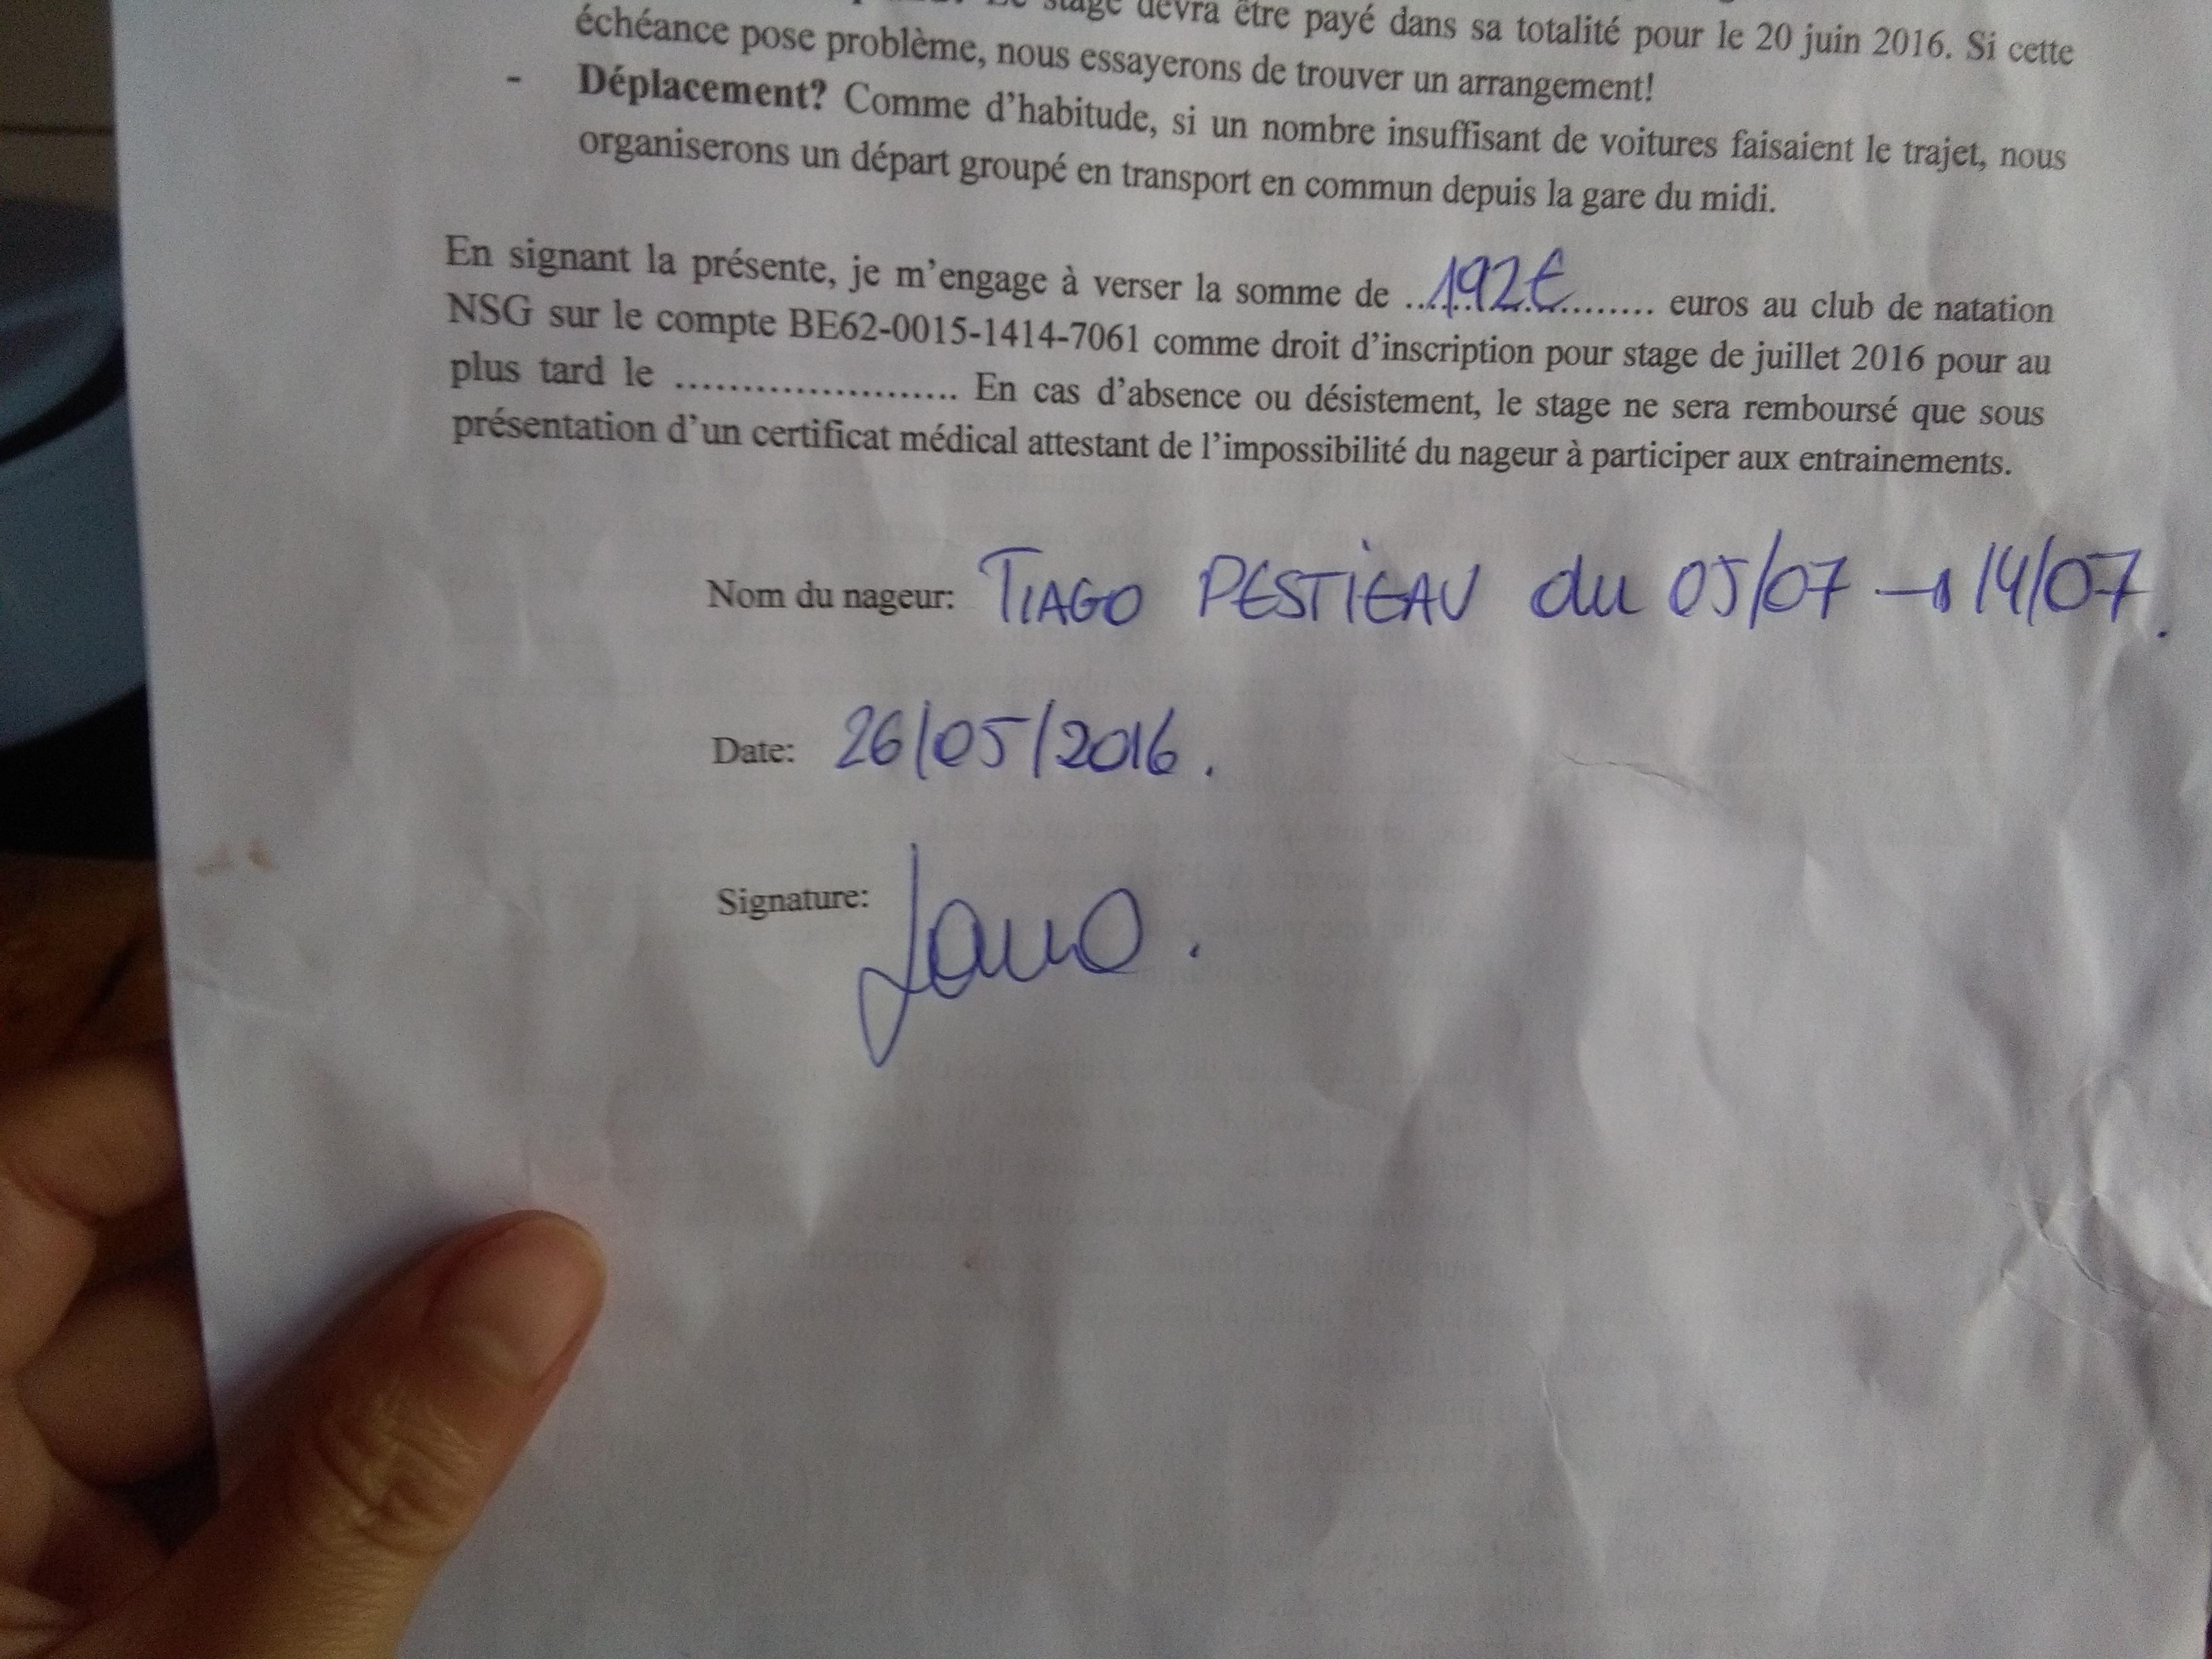 stage devra être payé dans sa totalité pour le 20 juin 2016. Si cette
échéance pose problème, nous essayerons de trouver un arrangement!
- Déplacement? Comme d'habitude, si un nombre insuffisant de voitures faisaient le trajet, nous
organiserons un départ groupé en transport en commun depuis la gare du midi.
En signant la présente, je m'engage à verser la somme de ..192€........ euros au club de natation
NSG sur le compte BE62-0015-1414-7061 comme droit d'inscription pour stage de juillet 2016 pour au
plus tard le ..................... En cas d'absence ou désistement, le stage ne sera remboursé que sous
présentation d'un certificat médical attestant de l'impossibilité du nageur à participer aux entrainements.
Nom du nageur: TIAGO PESTIEAU du 05/07 → 14/07.
Date: 26/05/2016.
Signature: